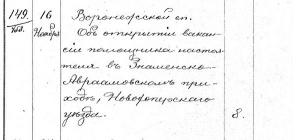 149. 16 Воронежской еп.
Ноября Объ открытiи вакан-
сiи помощника настоя-
теля въ Знаменско-
Авраамовскомъ при-
ходѣ, Новохоперскаго
уѣзда. 8.